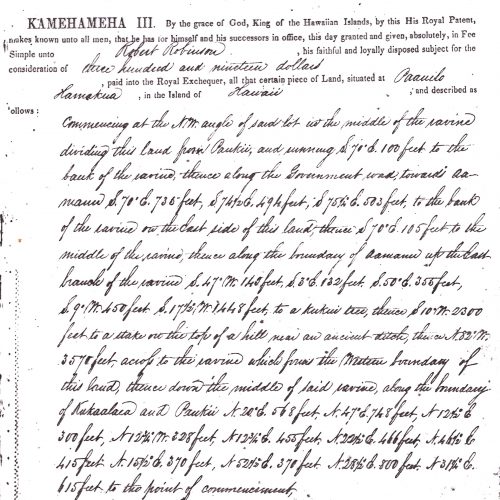 KAMEHAMEHA III. By the grace of God, King of the Hawaiian Islands, by this His Royal Patent,
makes known unto all men, that he has for himself and his successors in office, this day granted and given, absolutely, in Fee
Simple unto Robert Robinson, his faithful and loyally disposed subject for the
consideration of three hundred and nineteen dollars
, paid into the Royal Exchequer, all that certain piece of Land, situated at Paauilo
Hamakua, in the Island of Hawaii ; and described as
ollows :
Commencing at the N.W. angle of said lot in the middle of the ravine
dividing this land from Paukii, and running S. 70° E. 100 feet to the
bank of the ravine, thence along the Government road, towards Aa-
manu S. 70° E. 735 feet, S 74½ E. 494 feet, S 75½ E. 503 feet, to the bank
of the ravine on the East side of this land, thence S 70° E 105 feet to the
middle of the ravine, thence along the boundary of Aamanu up the East
branch of the ravine S. 47° W. 140 feet, S 3° E 132 feet, S. 50° E. 350 feet,
S. 9° W. 450 feet S. 17½° W. 1448 feet, to a kukui tree, thence S 10° W. 2300
feet to a stake on the top of a hill near an ancient ditch, thence N. 32° W.
3570 feet, across to the ravine which forms the Western boundary of
this land, thence down the middle of said ravine, along the boundary
of Kukaalaea and Paukii N. 20° E. 568 feet, N. 47° E. 748 feet, N 12½° E
300 feet, N 12¾° W. 328 feet, N 12¾° E. 455 feet, N. 22½° E. 466 feet, N. 46½° E.
415 feet N. 15½° E. 370 feet, N 52½° E. 370 feet N. 28½° E. 800 feet, N 31¾° E.
615 feet to the point of commencement,